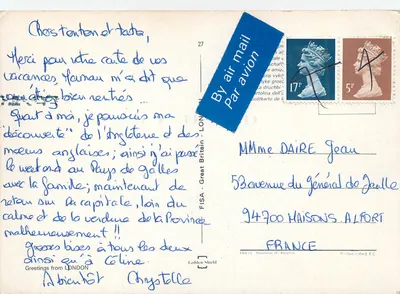 Chers tonton et tata,
Merci pour votre carte de vos
vacances, Maman m'a dit que
vous étiez bien rentrés
Quant à moi, je poursuis ma
"découverte" de l'Angleterre et des
mœurs anglaises; ainsi j'ai passé
le week end au Pays de Galles
avec la famille; maintenant de
retour sur la capitale, loin du
calme et de la verdure de la Province
malheureusement!!
Grosses bises à tous les deux
ainsi qu'à Céline.
A bientôt Chrystelle
Greetings from LONDON
27
FISA - Great Britain - LONDON
Golden Shield
By air mail
Par avion
17P
5P
MMme DAIRE Jean
53 avenue du Général de Gaulle
94700 MAISONS ALFORT
FRANCE